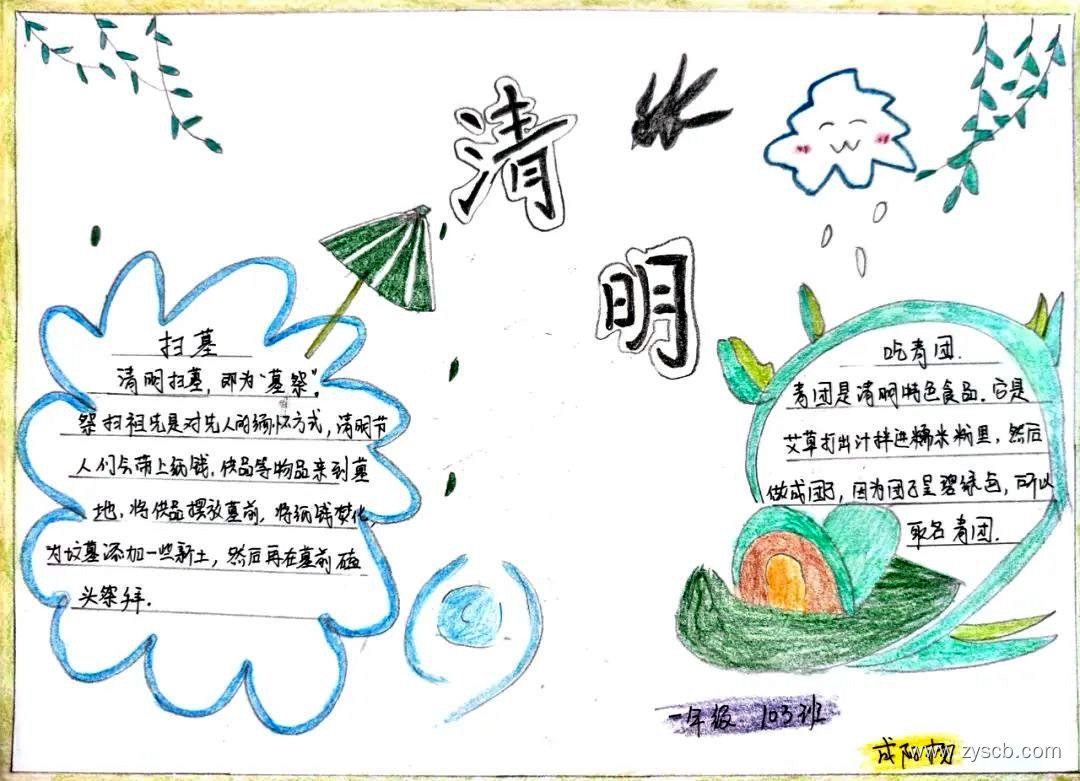 清
明
扫墓
清明扫墓，即为“墓祭”。
祭扫祖先是对先人的缅怀方式，清明节
人们会带上纸钱，供品等物品来到墓
地，将供品摆放墓前，将纸钱焚化，
为坟墓添加一些新土，然后再在墓前磕
头祭拜．
吃青团．
青团是清明特色食品．它是
艾草打出汁拌进糯米粉里，然后
做成团子，因为团子呈碧绿色，所以
取名青团．
一年级 103班
www.zyscb.com